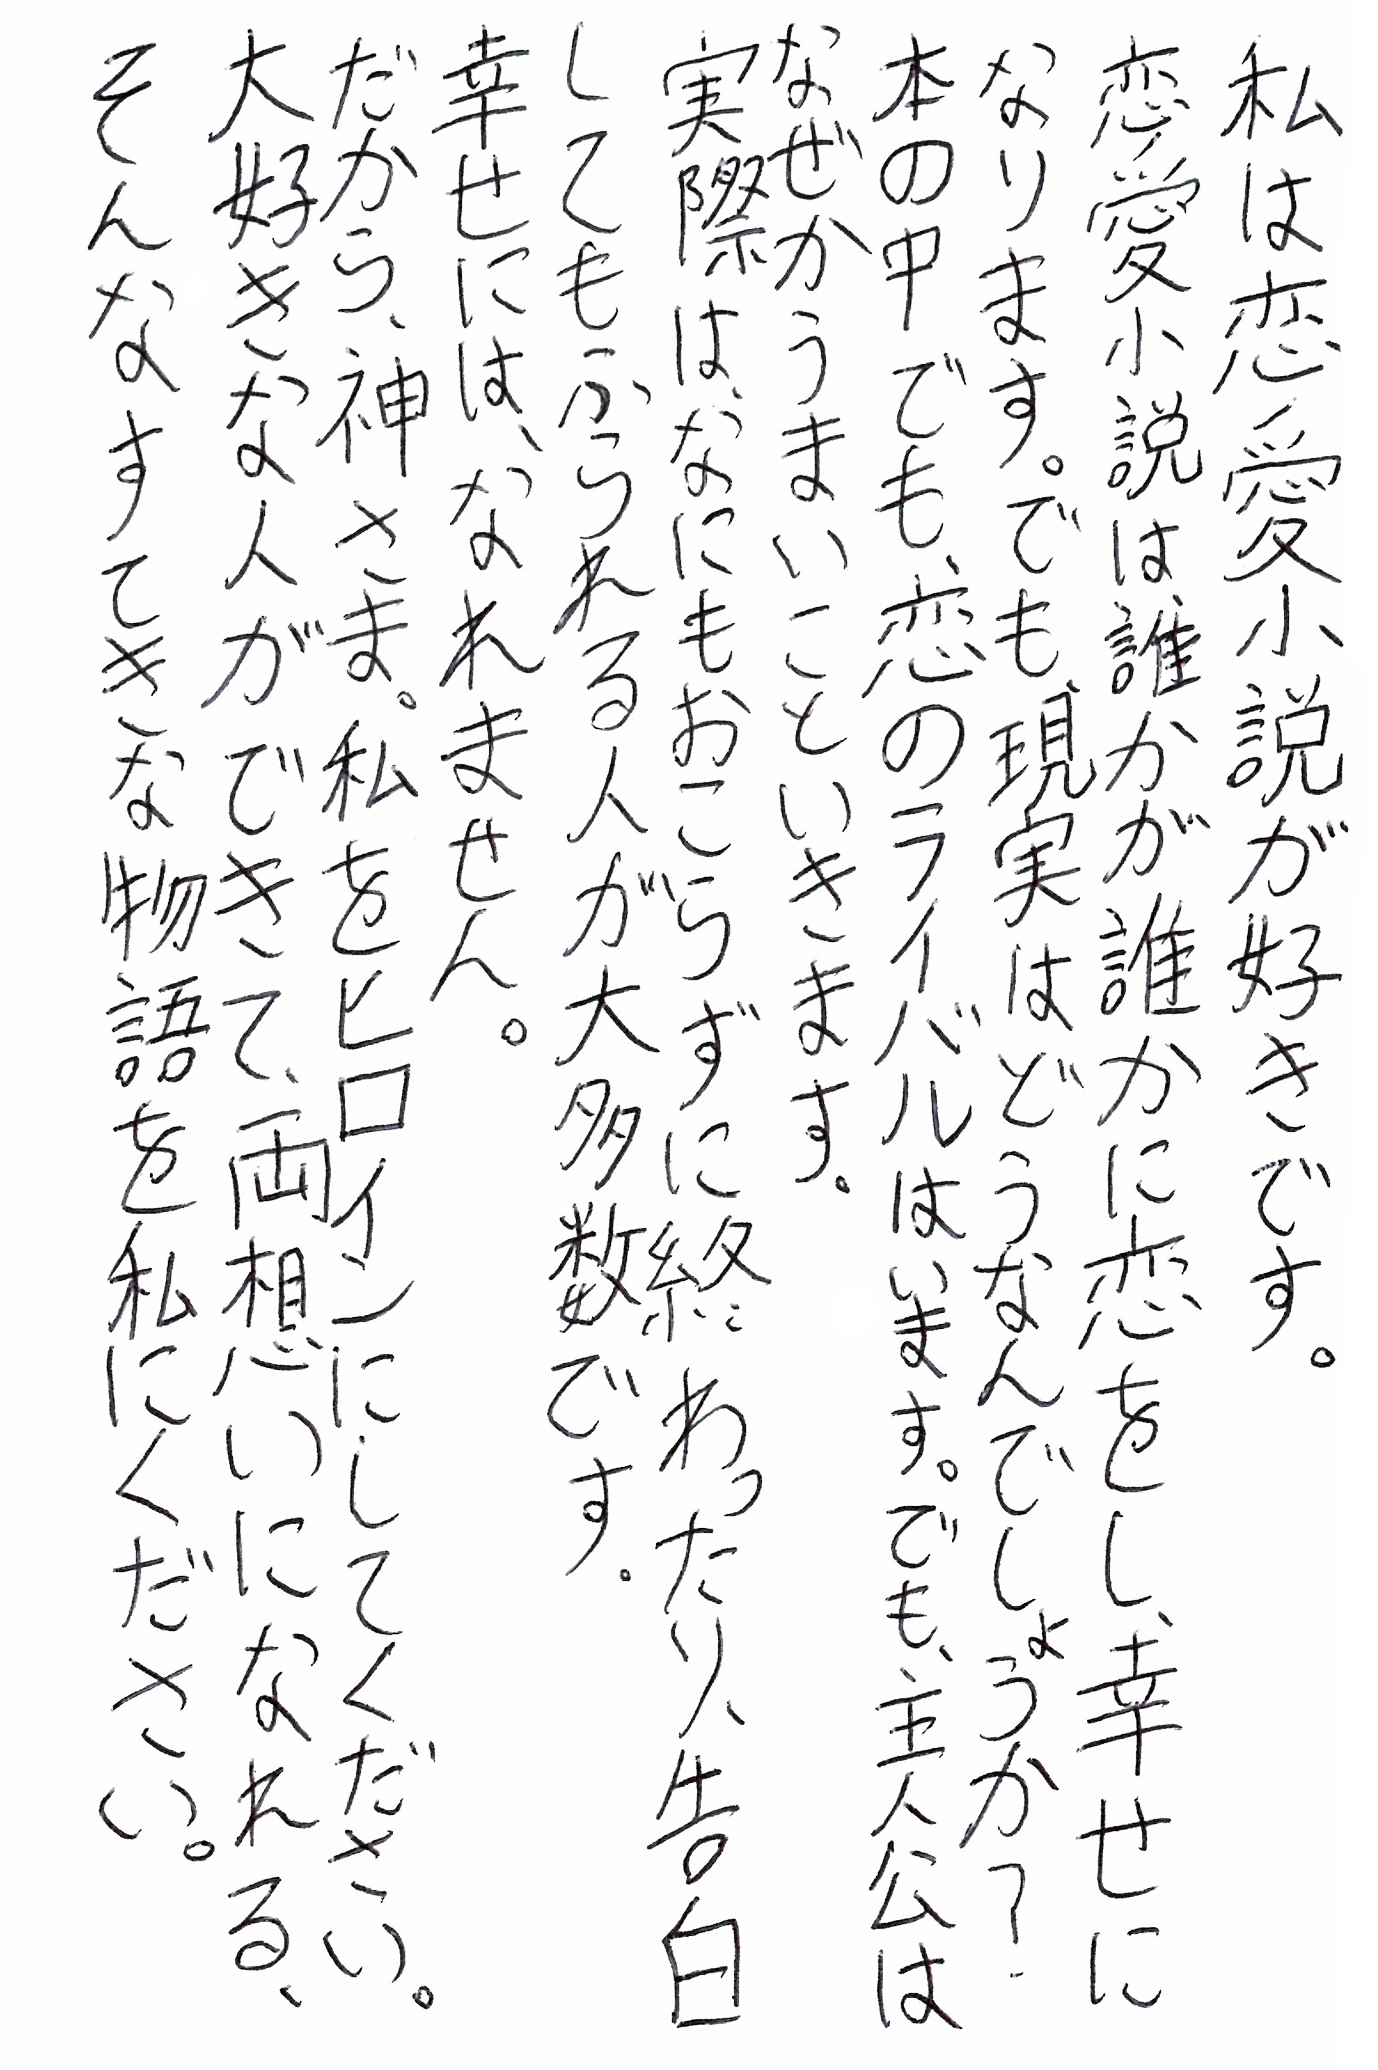 私は恋愛小説が好きです。
恋愛小説は誰かが誰かに恋をし、幸せに
なります。でも、現実はどうなんでしょうか?
本の中でも、恋のライバルはいます。でも、主人公は
なぜかうまいこといきます。
実際は、なにもおこらずに終わったり、告白
してもふられる人が大多数です。
幸せには、なれません。
だから、神さま。私をヒロインにしてください。
大好きな人ができて、両想いになれる、
そんなすてきな物語を私にください。